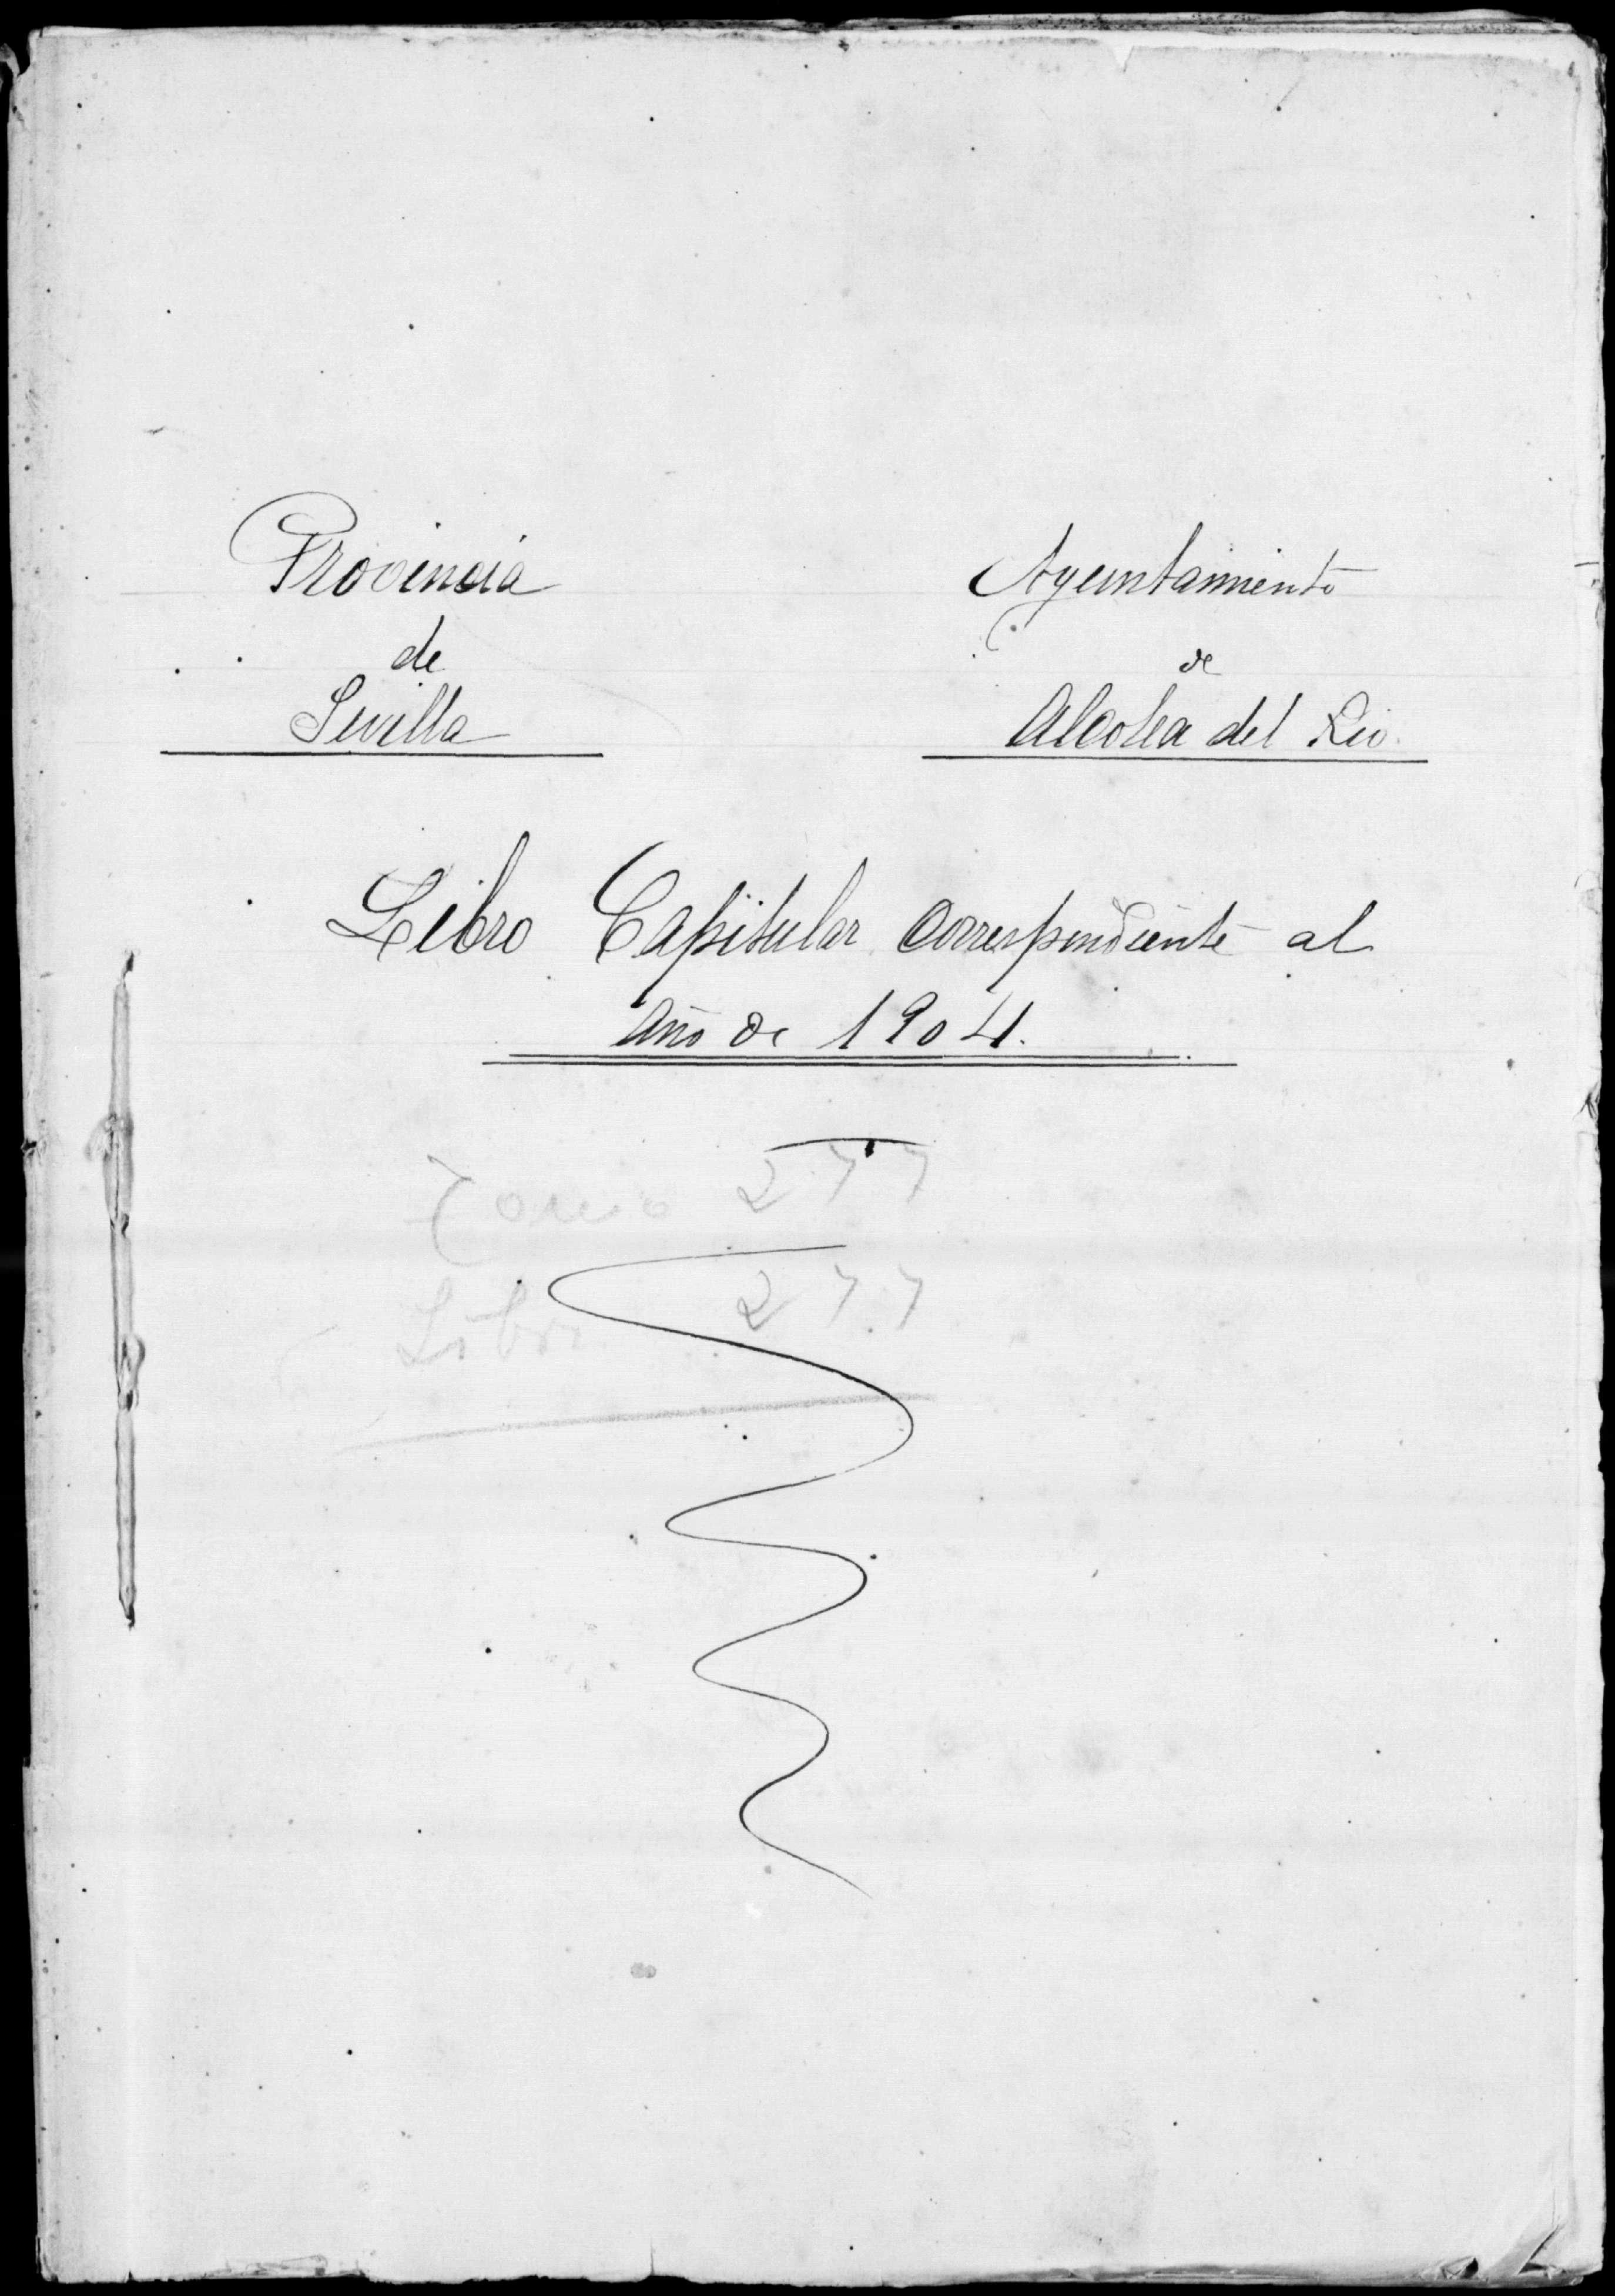 Provincia
de
Sevilla
Ayuntamiento
de
Alcolea del Rio.
Libro Capitular correspondiente al
Año de 1904.
Tomo 277
Libro 277